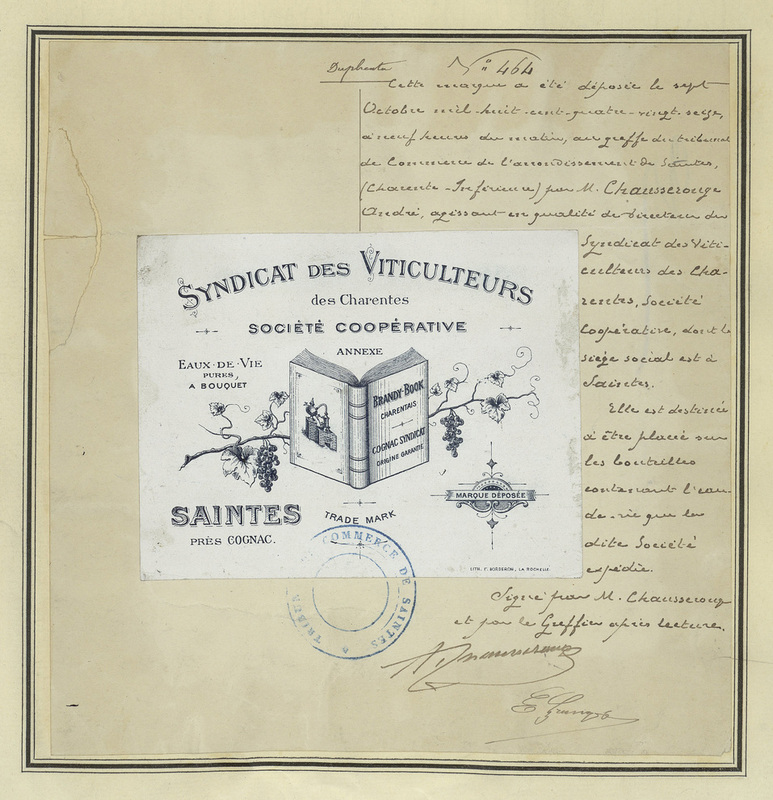 Duplicata
N° 464
Cette marque a été déposée le sept
Octobre mil-huit-cent-quatre-vingt-seize,
à neuf heures du matin, au greffe du tribunal
de Commerce de l'arrondissement de Saintes,
(Charente-Inférieure) par M. Chausserouge
André, agissant en qualité de directeur du
Syndicat des Viti-
culteurs des Cha-
rentes, Société
Coopérative, dont le
siège social est à
Saintes.
Elle est destinée
à être placée sur
les bouteilles
contenant l'eau-
de-vie que la
dite Société
expédie.
Signé par M. Chausserouge
et par le Greffier après lecture.
SYNDICAT DES VITICULTEURS
des Charentes
SOCIÉTÉ COOPÉRATIVE
ANNEXE
EAUX-DE-VIE
PURES,
A BOUQUET
BRANDY-BOOK
CHARENTAIS
COGNAC SYNDICAT
ORIGINE GARANTIE
MARQUE DÉPOSÉE
SAINTES
PRÈS COGNAC.
TRADE MARK
COMMERCE DE SAINTES